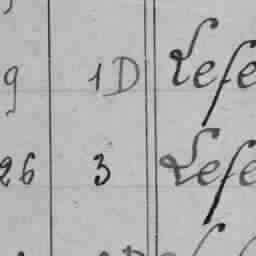 9 1D Lefe
26 3 Lefe